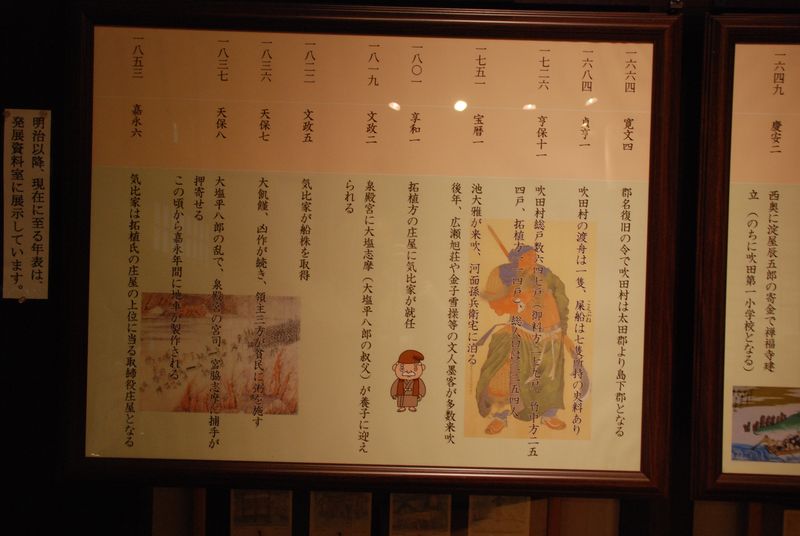 一六四九
慶安二
西奥に淀屋辰五郎の寄金で禅福寺建
立（のちに吹田第一小学校となる）
一六六四
寛文四
郡名復旧の令で吹田村は太田郡より島下郡となる
一六八四
貞享一
吹田村の渡舟は一隻、屎船は七隻所持の史料あり
一七二六
享保十一
吹田村総戸数六四七戸（御料方二七九戸、竹中方二五
四戸、拓植方一一四戸）、総人口は三二五四人
一七五一
宝暦一
池大雅が来吹、河面孫兵衛宅に泊る
後年、広瀬旭荘や金子雪操等の文人墨客が多数来吹
一八〇一
享和一
拓植方の庄屋に気比家が就任
一八一九
文政二
泉殿宮に大塩志摩（大塩平八郎の叔父）が養子に迎え
られる
一八二二
文政五
気比家が船株を取得
一八三六
天保七
大飢饉、凶作が続き、領主三方が貧民に粥を施す
一八三七
天保八
大塩平八郎の乱で、泉殿宮の宮司、宮脇志摩へ捕手が
押寄せる
この頃から嘉永年間に地車が製作される
一八五三
嘉永六
気比家は拓植氏の庄屋の上位に当る取締役庄屋となる
明治以降、現在に至る年表は、
発展資料室に展示しています。